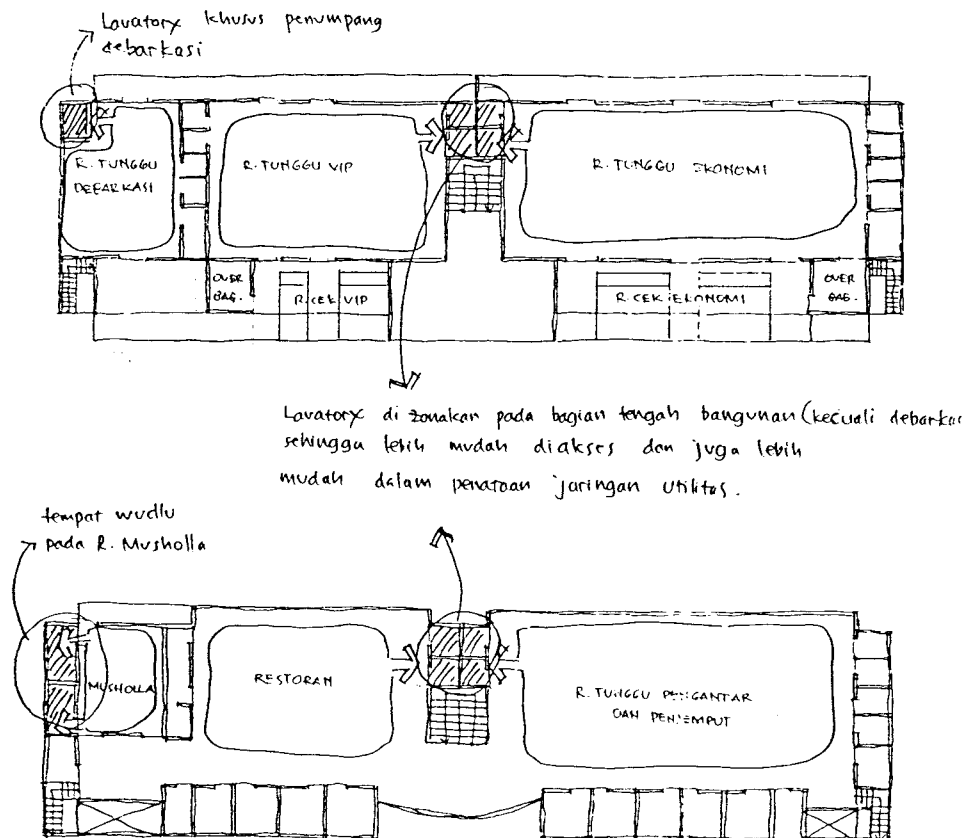 Lavatory khusus penumpang
debarkasi
R. TUNGGU
DEBARKASI
R. TUNGGU VIP
R. TUNGGU EKONOMI
OVER
BAG.
R. CEK VIP
R. CEK EKONOMI
OVER
BAG.
Lavatory di zonakan pada bagian tengah bangunan (kecuali debarkas
sehingga lebih mudah diakses dan juga lebih
mudah dalam penataan jaringan utilitas.
tempat wudlu
pada R. Musholla
MUSHOLLA
RESTORAN
R. TUNGGU PENGANTAR
DAN PENJEMPUT